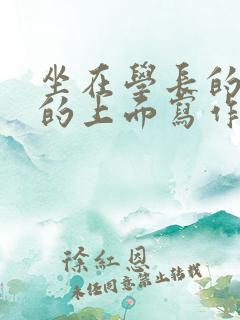 坐在學長的
的上面寫作
徐紅恩
未经同意禁止转载